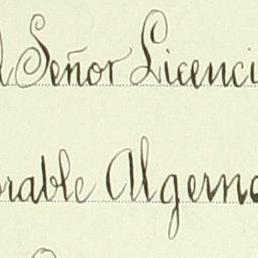 l Señor Licenci
orable Algerno